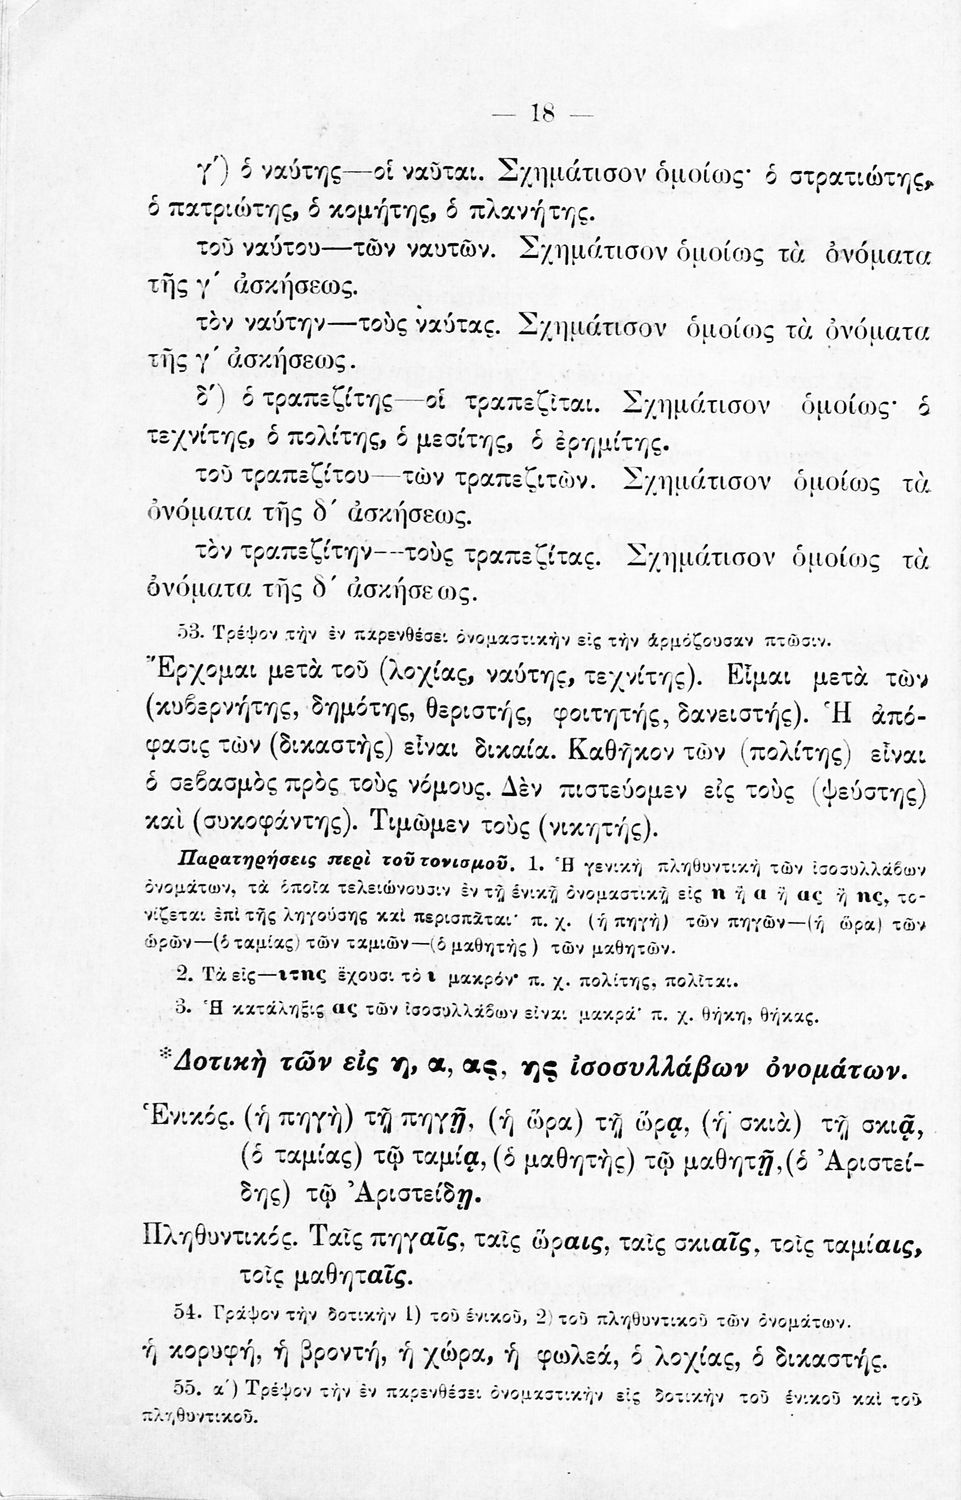 — 18 —
γ΄) ὁ ναύτης—οἱ ναῦται. Σχημάτισον ὁμοίως· ὁ στρατιώτης,
ὁ πατριώτης, ὁ κομήτης, ὁ πλανήτης.
τοῦ ναύτου—τῶν ναυτῶν. Σχημάτισον ὁμοίως τὰ ὀνόματα
τῆς γ΄ ἀσκήσεως.
τὸν ναύτην—τοὺς ναύτας. Σχημάτισον ὁμοίως τὰ ὀνόματα
τῆς γ΄ ἀσκήσεως.
δ΄) ὁ τραπεζίτης—οἱ τραπεζῖται. Σχημάτισον ὁμοίως· ὁ
τεχνίτης, ὁ πολίτης, ὁ μεσίτης, ὁ ἐρημίτης.
τοῦ τραπεζίτου—τῶν τραπεζιτῶν. Σχημάτισον ὁμοίως τὰ
ὀνόματα τῆς δ΄ ἀσκήσεως.
τὸν τραπεζίτην—τοὺς τραπεζίτας. Σχημάτισον ὁμοίως τὰ
ὀνόματα τῆς δ΄ ἀσκήσεως.
53. Τρέψον τὴν ἐν παρενθέσει ὀνομαστικὴν εἰς τὴν ἁρμόζουσαν πτῶσιν.
Ἔρχομαι μετὰ τοῦ (λοχίας, ναύτης, τεχνίτης). Εἶμαι μετὰ τῶν
(κυβερνήτης, δημότης, θεριστής, φοιτητής, δανειστής). Ἡ ἀπό-
φασις τῶν (δικαστὴς) εἶναι δικαία. Καθῆκον τῶν (πολίτης) εἶναι
ὁ σεβασμὸς πρὸς τοὺς νόμους. Δὲν πιστεύομεν εἰς τοὺς (ψεύστης)
καὶ (συκοφάντης). Τιμῶμεν τοὺς (νικητής).
Παρατηρήσεις περὶ τοῦ τονισμοῦ. 1. Ἡ γενικὴ πληθυντικὴ τῶν ἰσοσυλλάβων
ὀνομάτων, τὰ ὁποῖα τελειώνουσιν ἐν τῇ ἑνικῇ ὀνομαστικῇ εἰς η ἢ α ἢ ας ἢ ης, το-
νίζεται ἐπὶ τῆς ληγούσης καὶ περισπᾶται· π. χ. (ἡ πηγὴ) τῶν πηγῶν—(ἡ ὥρα) τῶν
ὡρῶν—(ὁ ταμίας) τῶν ταμιῶν—(ὁ μαθητὴς) τῶν μαθητῶν.
2. Τὰ εἰς—ιτης ἔχουσι τὸ ι μακρόν· π. χ. πολίτης, πολῖται.
3. Ἡ κατάληξις ας τῶν ἰσοσυλλάβων εἶναι μακρά· π. χ. θήκη, θήκας.
*Δοτικὴ τῶν εἰς η, α, ας, ης ἰσοσυλλάβων ὀνομάτων.
Ἑνικός. (ἡ πηγὴ) τῇ πηγῇ, (ἡ ὥρα) τῇ ὥρᾳ, (ἡ σκιὰ) τῇ σκιᾷ,
(ὁ ταμίας) τῷ ταμίᾳ, (ὁ μαθητὴς) τῷ μαθητῇ, (ὁ Ἀριστεί-
δης) τῷ Ἀριστείδῃ.
Πληθυντικός. Ταῖς πηγαῖς, ταῖς ὥραις, ταῖς σκιαῖς, τοῖς ταμίαις,
τοῖς μαθηταῖς.
54. Γράψον τὴν δοτικὴν 1) τοῦ ἑνικοῦ, 2) τοῦ πληθυντικοῦ τῶν ὀνομάτων.
ἡ κορυφή, ἡ βροντή, ἡ χώρα, ἡ φωλεά, ὁ λοχίας, ὁ δικαστής.
55. α΄) Τρέψον τὴν ἐν παρενθέσει ὀνομαστικὴν εἰς δοτικὴν τοῦ ἑνικοῦ καὶ τοῦ
πληθυντικοῦ.